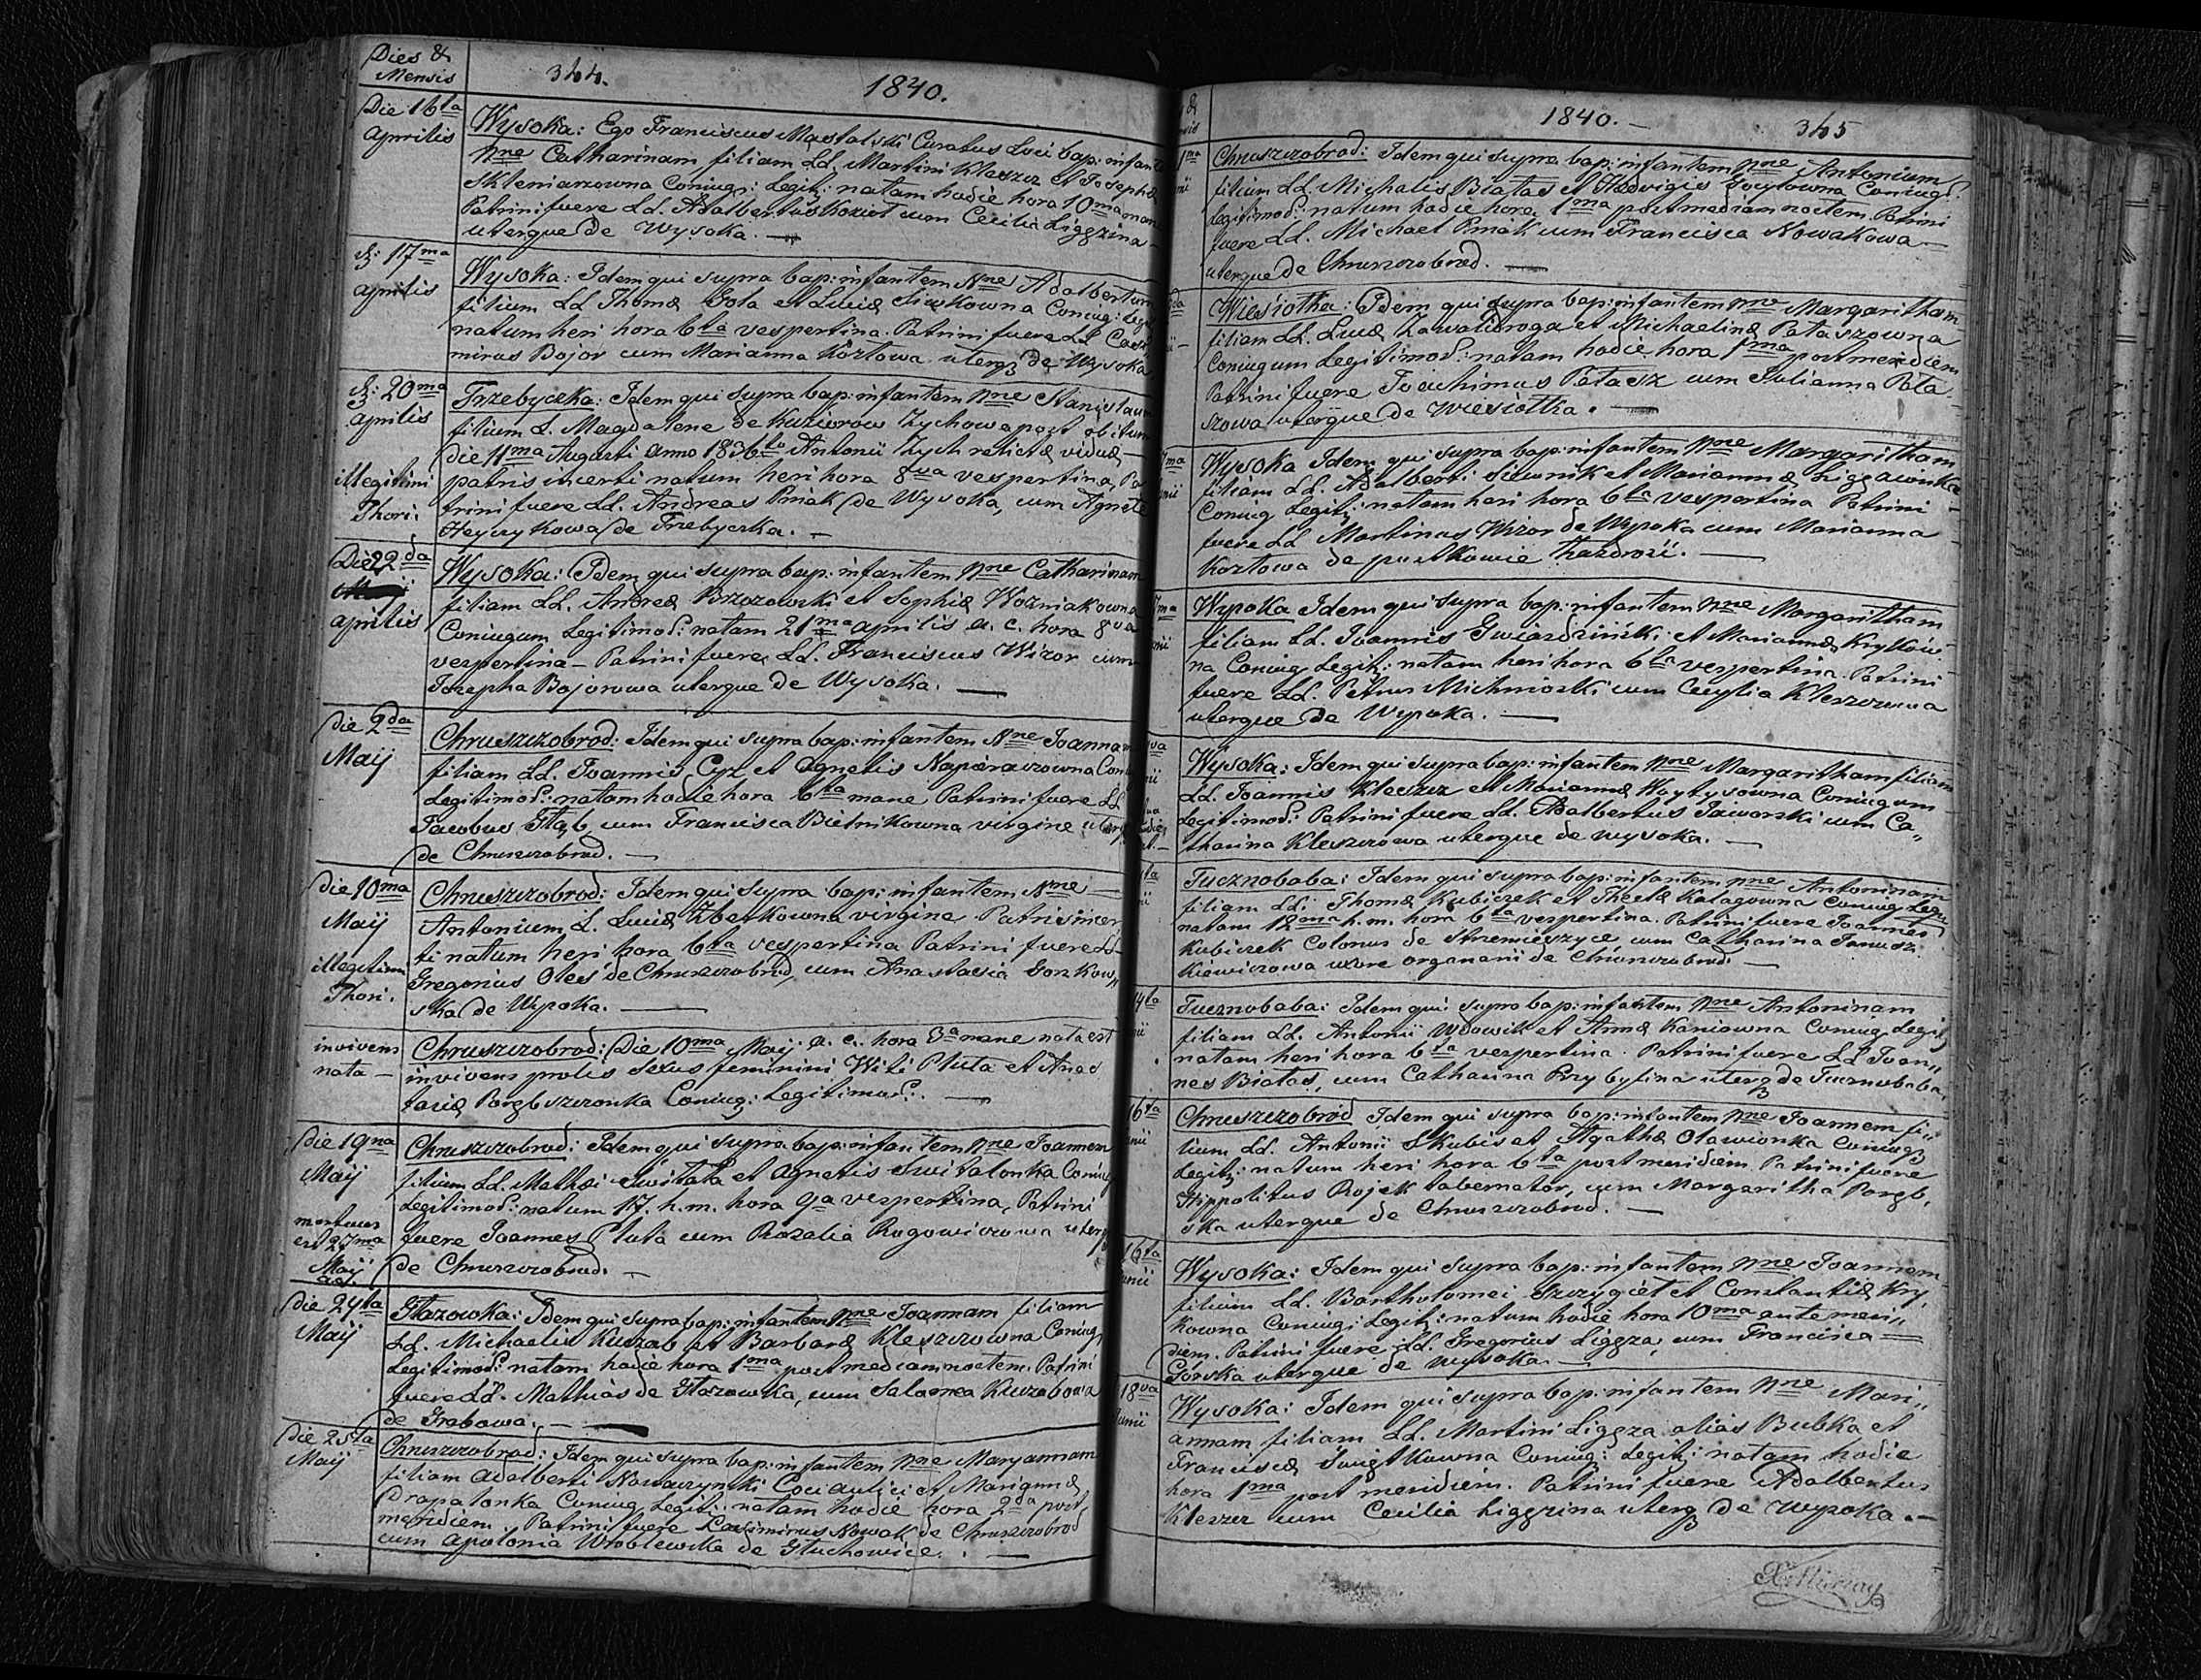 Dies &
Mensis
344.
1840.
Die 16ta
Aprilis
Wysoka: Ego Franciscus Mastalski Curatus Loci bap: infant
Nne Catharinam filiam LL. Martini Kleszcz et Josephæ
Skleniarzowna Coniug: Legit: natam hodie hora 10ma man
Patrini fuere LL. Adalbertus Kozieł cum Cecilia Liggzina
uterque de Wysoka.
d: 17ma
Aprilis
Wysoka: Idem qui supra bap: infantem Nne Adalbertum
filium LL Thomæ Gola et Luciæ Siwkowna Coniug: Legit
natum heri hora 6ta vespertina. Patrini fuere LL Casi
mirus Bojor cum Marianna Kozłowa uterq de Wysoka
d: 20ma
Aprilis
illegitimi
Thori:
Trzebyczka: Idem qui supra bap: infantem Nne Stanislaum
filium L. Magdalene de Kuziorow Zychowa post obitum
die 11ma Augusti anno 1836to Antonii Zych relictæ viduæ
patris incerti natum heri hora 8va vespertina, Pa
trini fuere LL. Andreas Pniak de Wysoka, cum Agnete
Heyczykowa de Trzebyczka.
Die 22da
Aprilis
Wysoka: Idem qui supra bap: infantem Nne Catharinam
filiam LL. Andreæ Brzozowski et Sophiæ Wozniakowna
Coniugum Legitimor: natam 21ma Aprilis a. c. hora 8va
vespertina – Patrini fuere LL. Franciscus Wizor cum
Josepha Bojorowa uterque de Wysoka.
Die 2da
Maij
Chruszczobrod: Idem qui supra bap: infantem Nne Joannam
filiam LL. Joannis Cyz et Agnetis Napierawzowna Con
Legitimor: natam hodie hora 6ta mane Patrini fuere LL
Jacobus Głąb cum Francisca Bielnikowna virgine uterq
de Chruszczobrod.
Die 10ma
Maij
illegitimi
Thori.
Chruszczobrod: Idem qui supra bap: infantem Nne
Antonium L. Luciæ Zberkowna virgine Patris incer
ti natum heri hora 6ta vespertina Patrini fuere LL
Gregorius Oles de Chruszczobrod, cum Anastasia Gorkow„
ska de Wysoka.
invivens
nata –
Chruszczobrod: Die 10ma Maij a. c. hora 3a mane nata est
invivens proles sexus feminini Witi Pluta et Anas
tasiæ Porębszczonka Coniug: Legitimor:
Die 19na
Maij
mortuus
est 27ma
Maij
Chruszczobrod: Idem qui supra bap: infantem Nne Joannem
filium LL. Mathei Switała et Agnetis Switalonka Coniug
Legitimor: natum 17. h. m. hora 9a vespertina, Patrini
fuere Joannes Pluta cum Rozalia Rogowiczowa uterq
de Chruszczobrod.
Die 24ta
Maij
Głazowka: Idem qui supra bap: infantem Nne Joannam filiam
LL. Michaelis Kuczab et Barbaræ Kleszczowna Coniug
Legitimor: natam hodie hora 1ma post mediam noctem. Patrini
fuere LL. Mathias de Głazowka, cum Salomea Kuczabowa
de Grabowa.
Die 25ta
Maij
Chruszczobrod: Idem qui supra bap: infantem Nne Maryannam
filiam Adalberti Nowaczynski Coci aulici et Mariannæ
Drapalonka Coniug Legit: natam hodie hora 2da post
meridiem Patrini fuere Casimirus Nowak de Chruszczobrod
cum Apolonia Wroblewska de Głuchowice.
1840.
345
Chruszczobrod: Idem qui supra bap: infantem Nne Antonium
filium LL. Michalis Białas et Hedvigis Coniug:
Legitimor: natum hodie hora 1ma post mediam noctem. Patrini
fuere LL. Michael Pniak cum Francisca Nowakowa
uterque de Chruszczobrod.
Wiesiołka: Idem qui supra bap: infantem Nne Margaritham
filiam LL. Lucæ Zawalidroga et Michaelinæ Pałaszowna
Coniugum Legitimor: natam hodie hora 1ma post meridiem
Patrini fuere Joachimus Pałasz cum Julianna Pała
szowa uterque de Wiesiołka.
Wysoka Idem qui supra bap: infantem Nne Margaritham
filiam LL. Adalberti Siewnik et Mariannæ Liggawionka
Coniug Legit: natam heri hora 6ta vespertina Patrini
fuere LL Martinus Wizor de Wysoka cum Marianna
Kozłowa de pustkowie Zazdrość.
Wysoka Idem qui supra bap: infantem Nne Margaritham
filiam LL. Joannis Gwiazdziński et Mariannæ Krytków
na Coniug Legit: natam heri hora 6ta vespertina. Patrini
fuere LL. Petrus Michniocki cum Cecylia Kleszczowa
uterque de Wysoka.
Wysoka: Idem qui supra bap: infantem Nne Margaritham filiam
LL. Joannis Kleszcz et Mariannæ Woytysowna Coniugum
Legitimor: Patrini fuere LL. Adalbertus Jaworski cum Ca„
tharina Kleszczowa uterque de Wysoka.
Tucznobaba: Idem qui supra bap: infantem Nne Antoninam
filiam LL: Thomæ Kubiczek et Theclæ Kałagowna Coniug Legit
natam 12ma h. m. hora 6ta vespertina. Patrini fuere Joannes
Kubiczek Colonus de Strzemieszyce cum Catharina Janusz
kiewiczowa uxore organarii de Chruszczobrod.
14ta
Tucznobaba: Idem qui supra bap: infantem Nne Antoninam
filiam LL. Antonii Wdowik et Annæ Kaniowna Coniug Legit
natam heri hora 6ta vespertina. Patrini fuere LL Joan„
nes Białas, cum Catharina Przybylina uterq de Tucznobaba
16ta
Chruszczobród Idem qui supra bap: infantem Nne Joannem fi„
lium LL. Antonii Skubis et Agathæ Oławionka Coniug
Legit: natum heri hora 6ta post meridiem. Patrini fuere
Hippolitus Rojek tabernator, cum Margaritha Poręb„
ska uterque de Chruszczobrod.
16ta
Junii
Wysoka: Idem qui supra bap: infantem Nne Joannem
filium LL. Bartholomei Szczygieł et Constantiæ Kry„
kowna Coniug: Legit: natum hodie hora 10ma ante meri„
diem. Patrini fuere LL. Gregorius Liggza, cum Francisca
Górska uterque de Wysoka.
18va
Junii
Wysoka: Idem qui supra bap: infantem Nne Mari„
annam filiam LL. Martini Liggza alias Bubka et
Franciscæ Świętkowna Coniug: Legit: natam hodie
hora 1ma post meridiem. Patrini fuere Adalbertus
Kleszcz cum Cecilia Liggzina uterq de Wysoka.